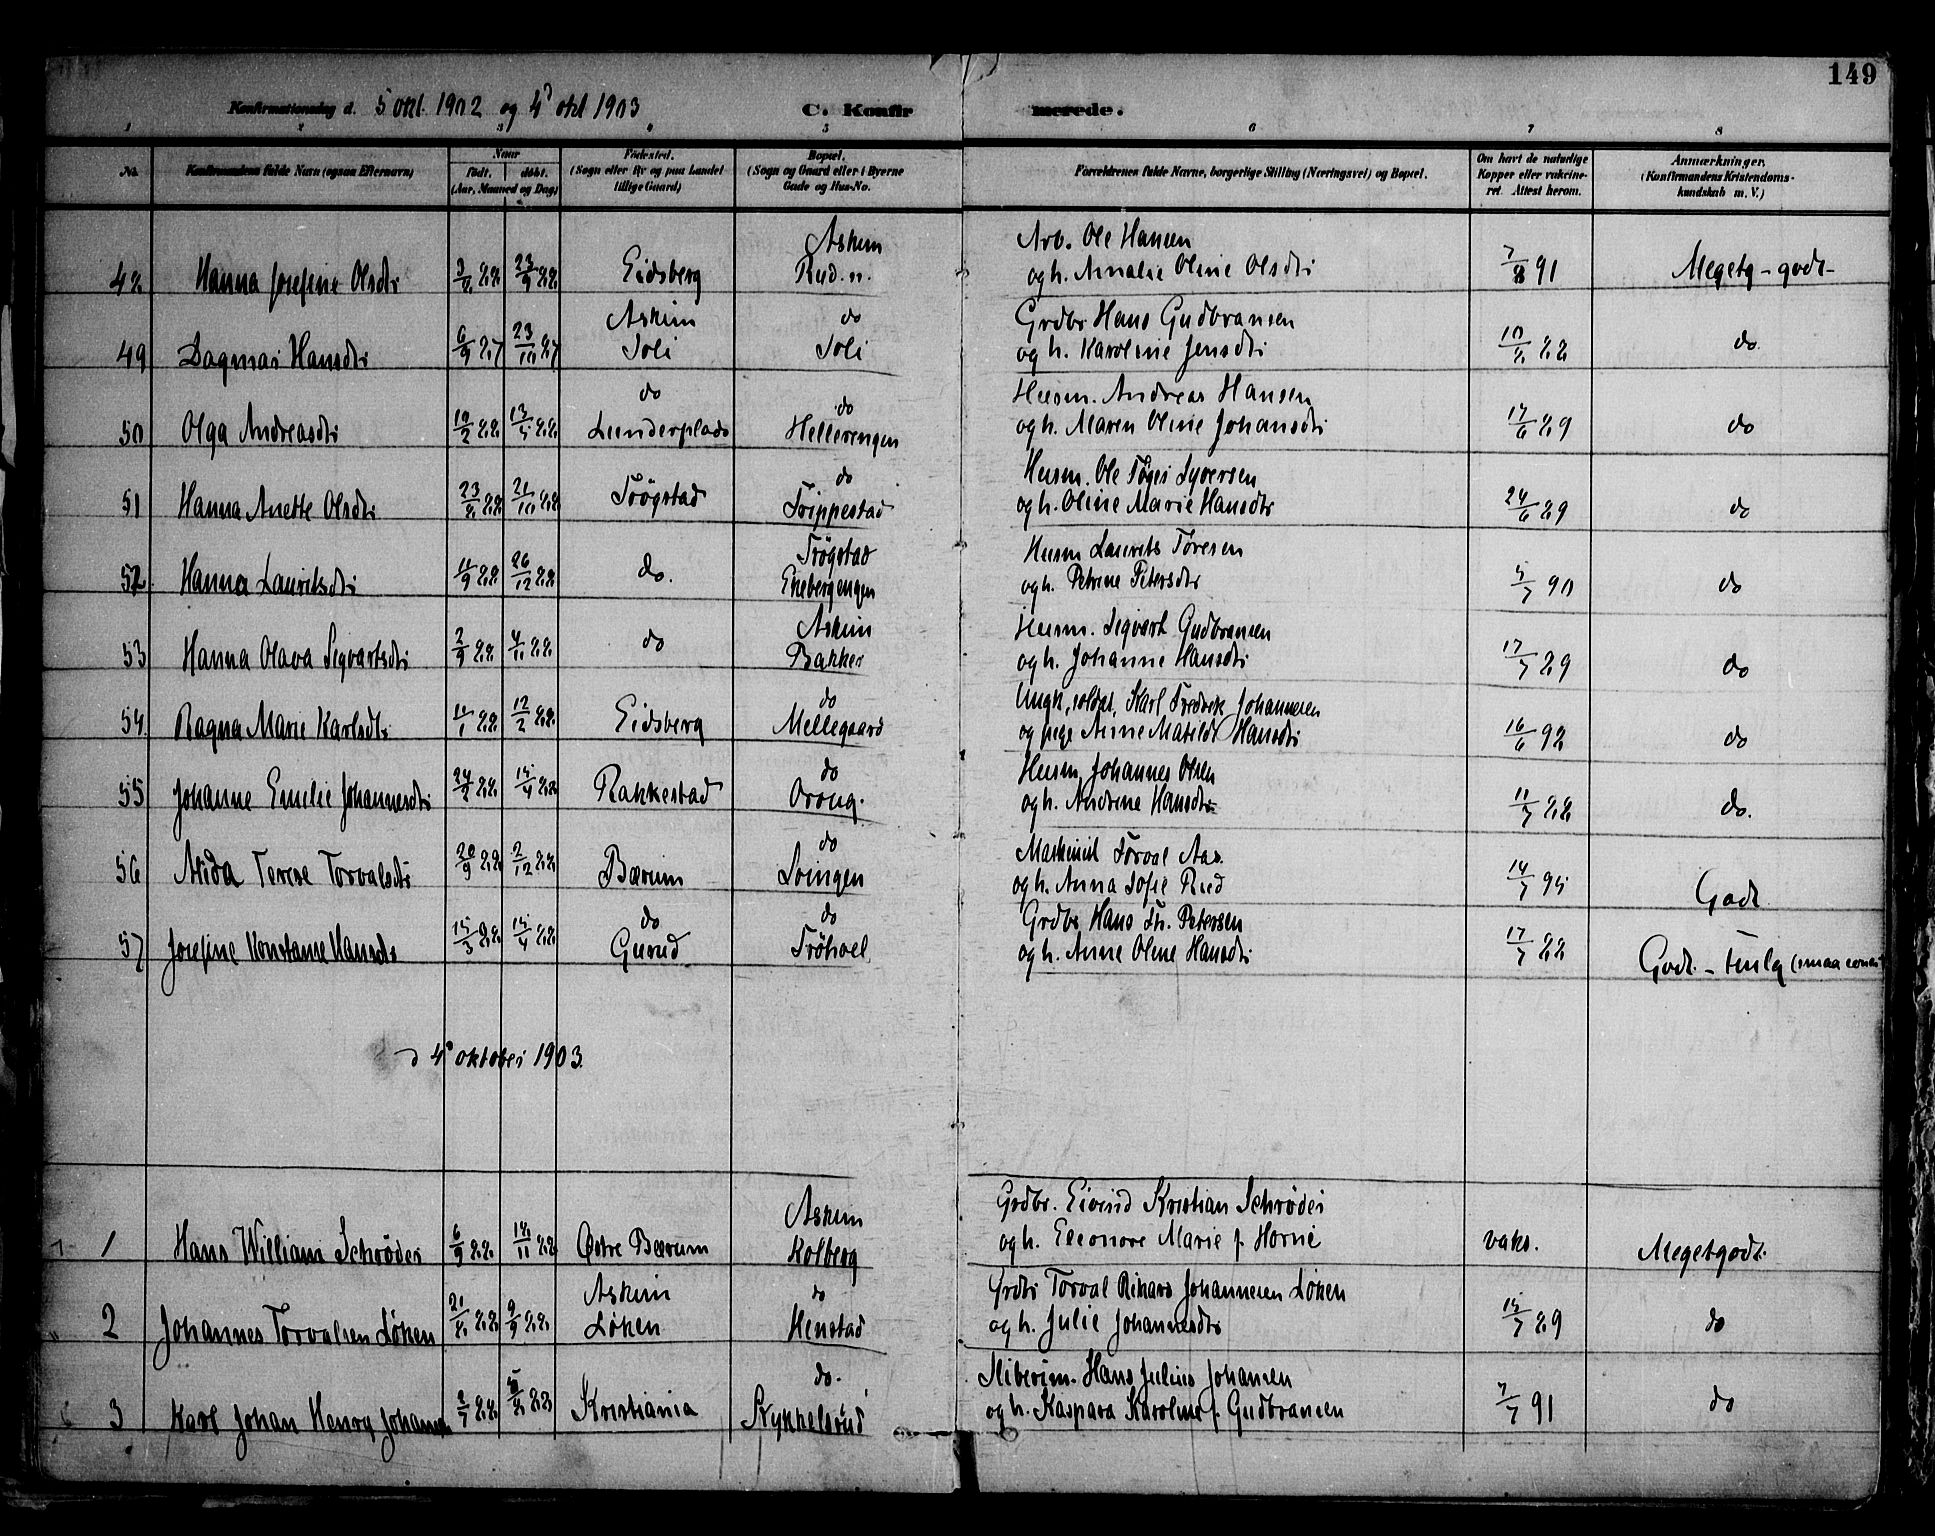 149
Konfirmationsdag d. 5 okt. 1902 og 4d okt 1903 C. Konfir merede.
1 2 3 4 5 6 7 8
No. Konfirmandens fulde Navn (ogsaa Efternavn) Naar født. døbt. (Aar, Maaned og Dag) Fødested. (Sogn eller By og paa Landet tillige Gaard) Bopæl. (Sogn og Gaard eller i Byerne Gade og Hus-No. Forældrenes fulde Navne, borgerlige Stilling (Næringsvei) og Bopæl. Om havt de naturlige Kopper eller vakcineret. Attest herom. Anmærkninger. (Konfirmandens Kristendomskundskab m. V.)
Askim Arb. Ole Hansen
48 Hanna Josefine Olsdtr 3/8 88 23/9 88 Eidsberg Rud. n. og h. Amalie Oline Olsdtr 7/8 91 Megetg - godt -
Askim do Grdbr Hans Gudbransen
49 Dagmar Hansdtr 6/9 87 23/10 87 Soli Soli og h. Karoline Jensdtr 10/8 88 do.
do do Husm. Andreas Hansen
50 Olga Andreasdtr 10/2 88 13/5 88 Lunderplads Hellerengen og h. Maren Oline Johansdtr 17/6 89 do
do Husm. Ole Tøger Syversen
51 Hanna Anette Olsdtr 23/8 88 21/10 88 Trøgstad Trippestad og h. Oline Marie Hansdtr 24/6 89 do
Trøgstad Husm Laurits Toresen
52. Hanna Lauritsdtr 11/9 88 26/12 88 do. Ekebergengen og h. Petrine Petersdtr 5/7 90 do
Askim Husm. Sigvart Gudbransen
53 Hanna Olava Sigvartsdtr 2/9 88 4/11 88 do Bakker og h. Johanne Hansdtr 17/7 89 do
do Ungk, soldat, Karl Fredrik Johannesen
54. Ragna Marie Karlsdtr 11/1 88 12/2 88 Eidsberg Mellegaard og pige Anne Matilde Hansdtr 16/6 92 do
do Husm, Johannes Olsen
55 Johanne Emilie Johannesdtr 24/2 88 15/4 88 Rakkestad Oroug. og h. Andrine Hansdtr 11/7 88 do.
do Maskinist Torval Aas.
56 Alida Terese Torvalsdtr 20/9 88 2/12 88 Bærum Svingen og h. Anna Sofie Rud 14/7 95 Godt
do do Grdbr Hans Th. Petersen
57 Josefine Konstanse Hansdtr 15/3 88 15/4 88 Gurud Trøhoel og h. Anne Oline Hansdtr 17/7 88 Godt. -
d 4d oktober 1903.
Askim Grdbr. Eivind Kristian Schrøder
1 Hans William Schrøder 6/9 88 18/11 88 Østre Bærum Kolberg og h. Eleonore Marie f. Horne vaks. Megetgodt.
Askim do Grdbr Torval Rikard Johannesen Løken
2 Johannes Torvalsen Løken 21/8 88 9/9 88 Løken Henstad og h. Julie Johannesdtr 15/7 89 do
do. Sliberim. Hans Julius Johansen
3 Karl Johan Henry Johansen 2/7 88 /8 88 Kristiania Skykkelsrud og h. Kaspara Karoline f. Gudbransen 7/7 91 do